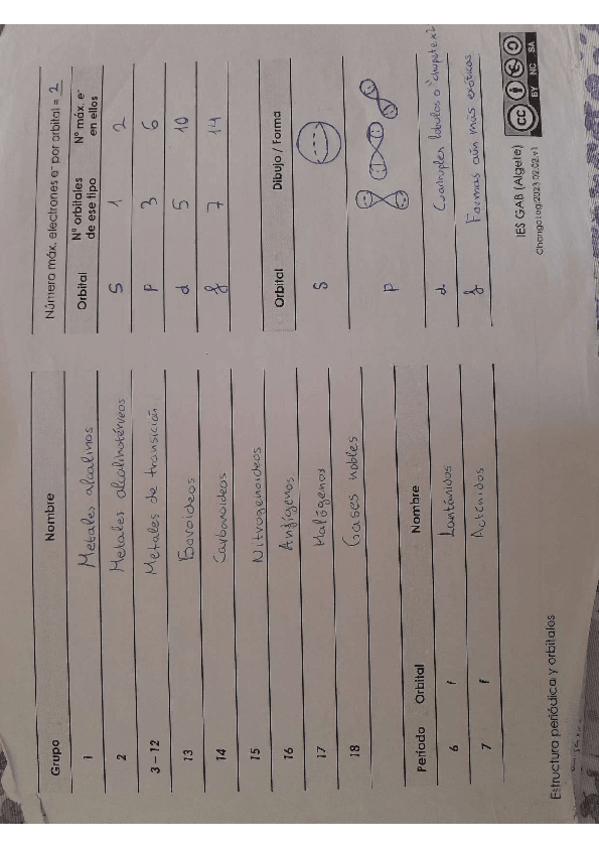 Grupo Nombre
1 Metales alcalinos
2 Metales alcalinotérreos
3 – 12 Metales de transición
13 Boroideos
14 Carbonoideos
15 Nitrogenoideos
16 Anfígenos
17 Halógenos
18 Gases nobles
Período Orbital Nombre
6 f Lantánidos
7 f Acténidos
Estructura periódica y orbitales
Número máx. electrones e⁻ por orbital = 2
Orbital Nº orbitales de ese tipo Nº máx. e⁻ en ellos
S 1 2
P 3 6
d 5 10
f 7 14
Orbital Dibujo / Forma
S
P
d Cuádruples lóbulos o
f Formas aún más exóticas
IES GAB (Algete)
Changolog/2023.02.02.v1
CC BY NC SA